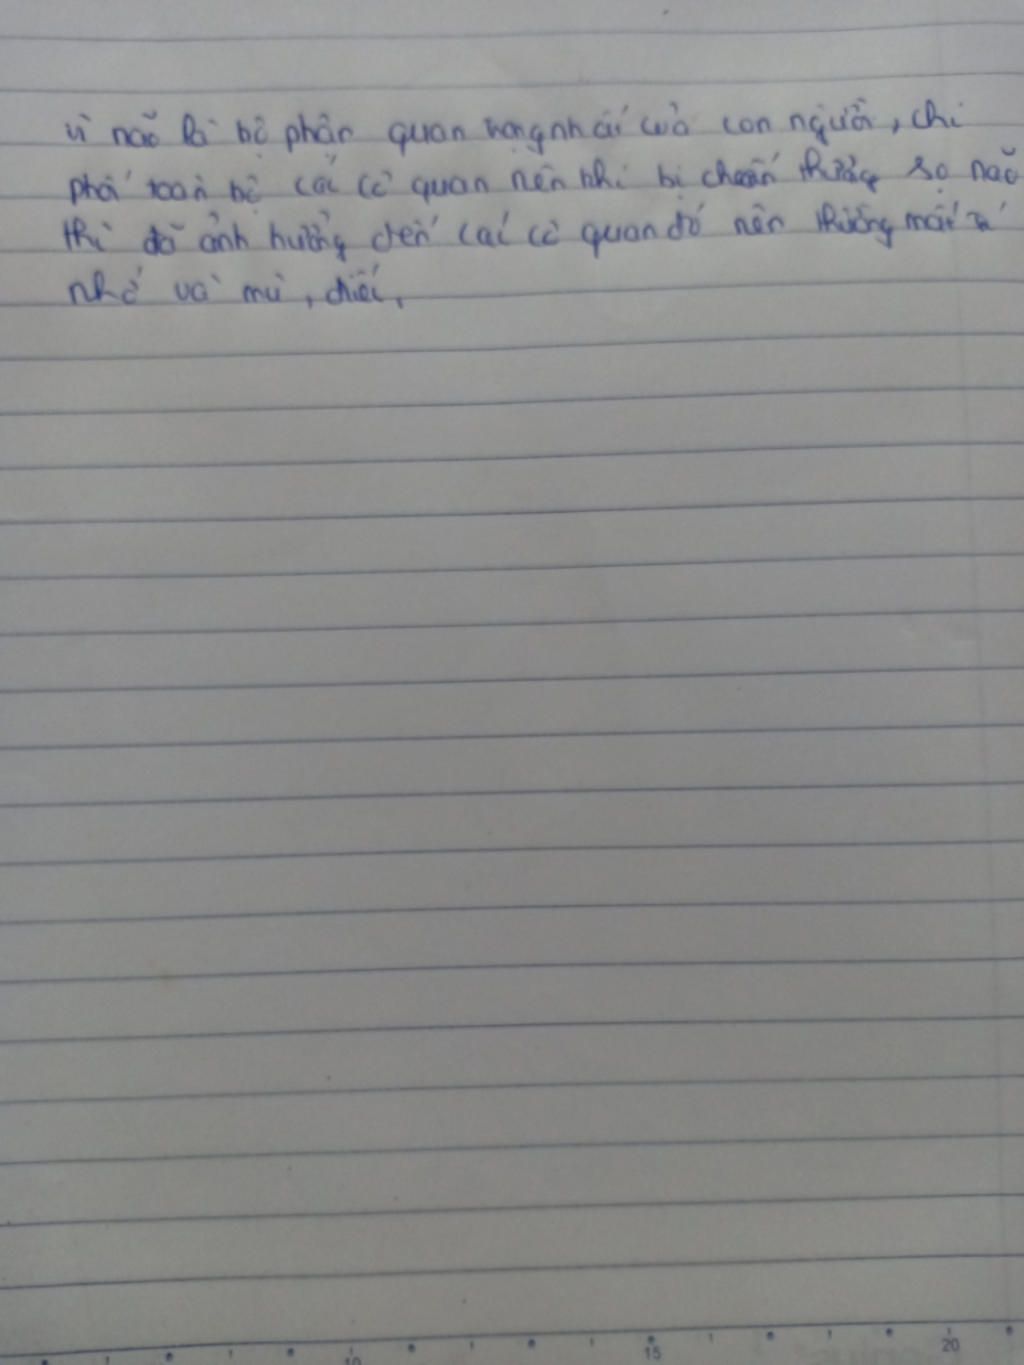 vì não là bộ phận quan trọng nhất của con người, chi
phối toàn bộ các cơ quan nên khi bị chấn thương sọ não
thì đã ảnh hưởng đến các cơ quan đó nên thường mất trí
nhớ và mù, điếc,
10 15 20